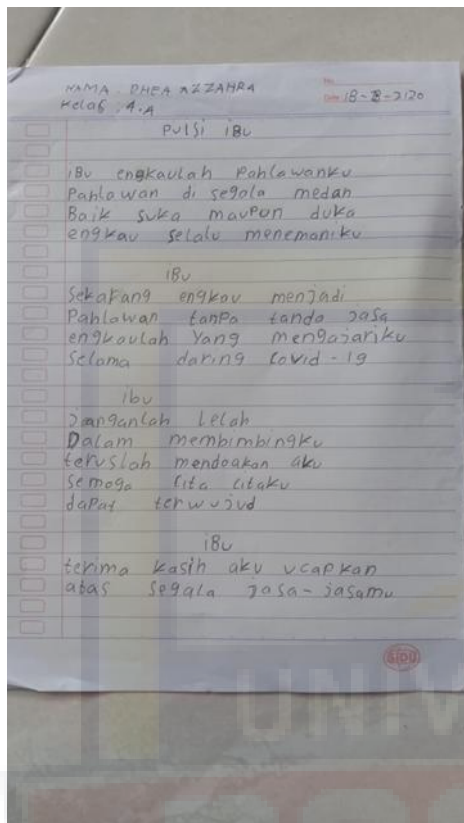 NAMA : DHEA AZZAHRA
Kelas : 4.A
No.
Date: 18-8-2120
PUISi iBu
iBu engkaulah Pahlawanku
Pahlawan di segala medan
Baik suka mauPun duka
engkau selalu menemaniku
iBu
Sekarang engkau menjadi
Pahlawan tanPa tanda Jasa
engkaulah Yang mengajariku
Selama daring Covid-19
ibu
Janganlah Lelah
Dalam membimbingku
teruslah mendoakan aku
Semoga Cita Citaku
daPat terwuJud
iBu
terima kasih aku ucaPkan
atas segala jasa-jasamu
SIDU
UNIV